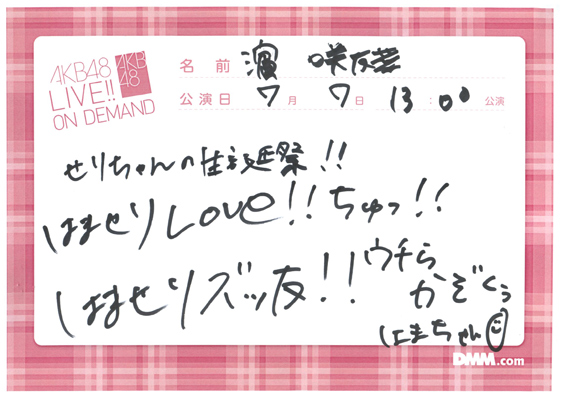 AKB48
LIVE!!
ON DEMAND
AKB
48
名前 濵 咲友菜
公演日 7月 7日 13:00 公演
せりちゃんの生誕祭!!
はませりLove!!ちゅっ!!
はませりズッ友!!ウチら
かぞくぅ
はまちゃん
DMM.com